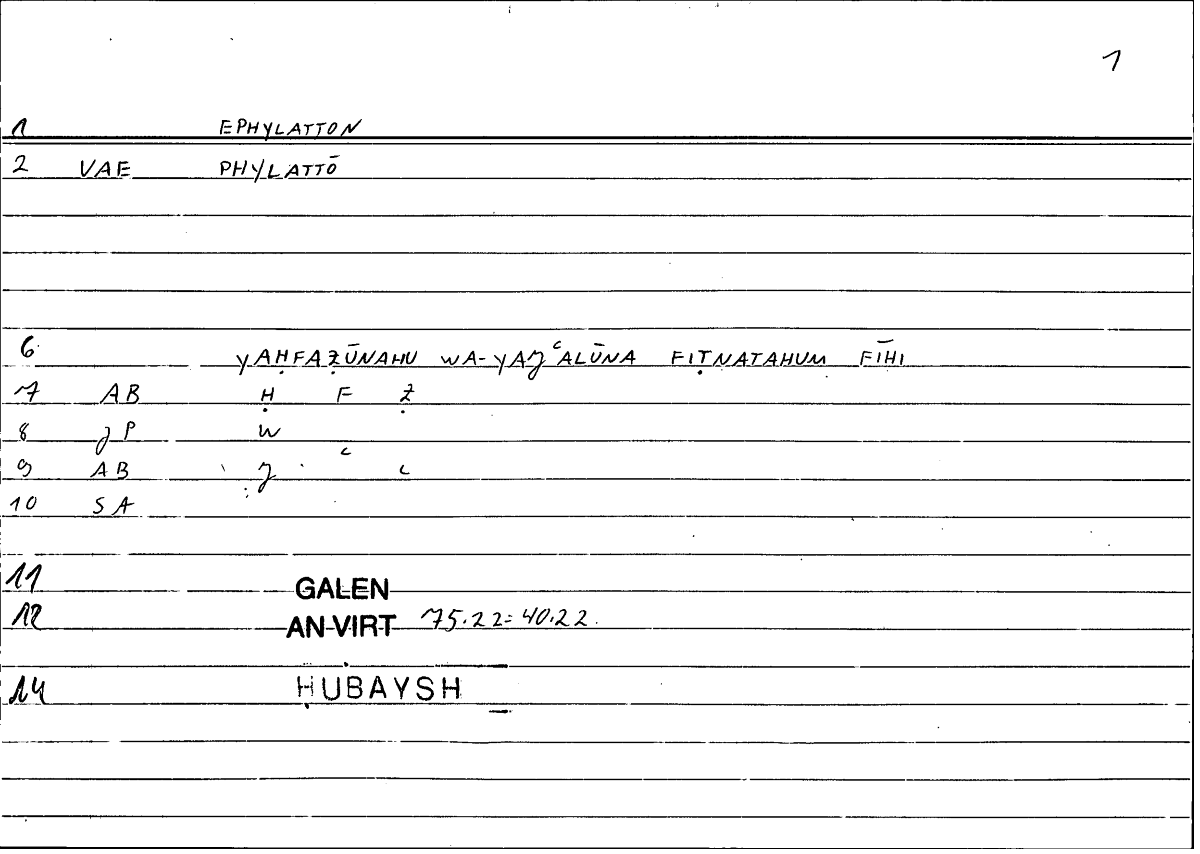 1
1 EPHYLATTON
2 VAE PHYLATTŌ
6 YAḤFAẒŪNAHU WA-YAJʿALŪNA FIṬNATAHUM FĪHI
7 AB Ḥ F Ẓ
8 JP W
9 AB J ʿ L
10 SA
11 GALEN
12 AN VIRT 75.22=40.22.
14 ḤUBAYSH